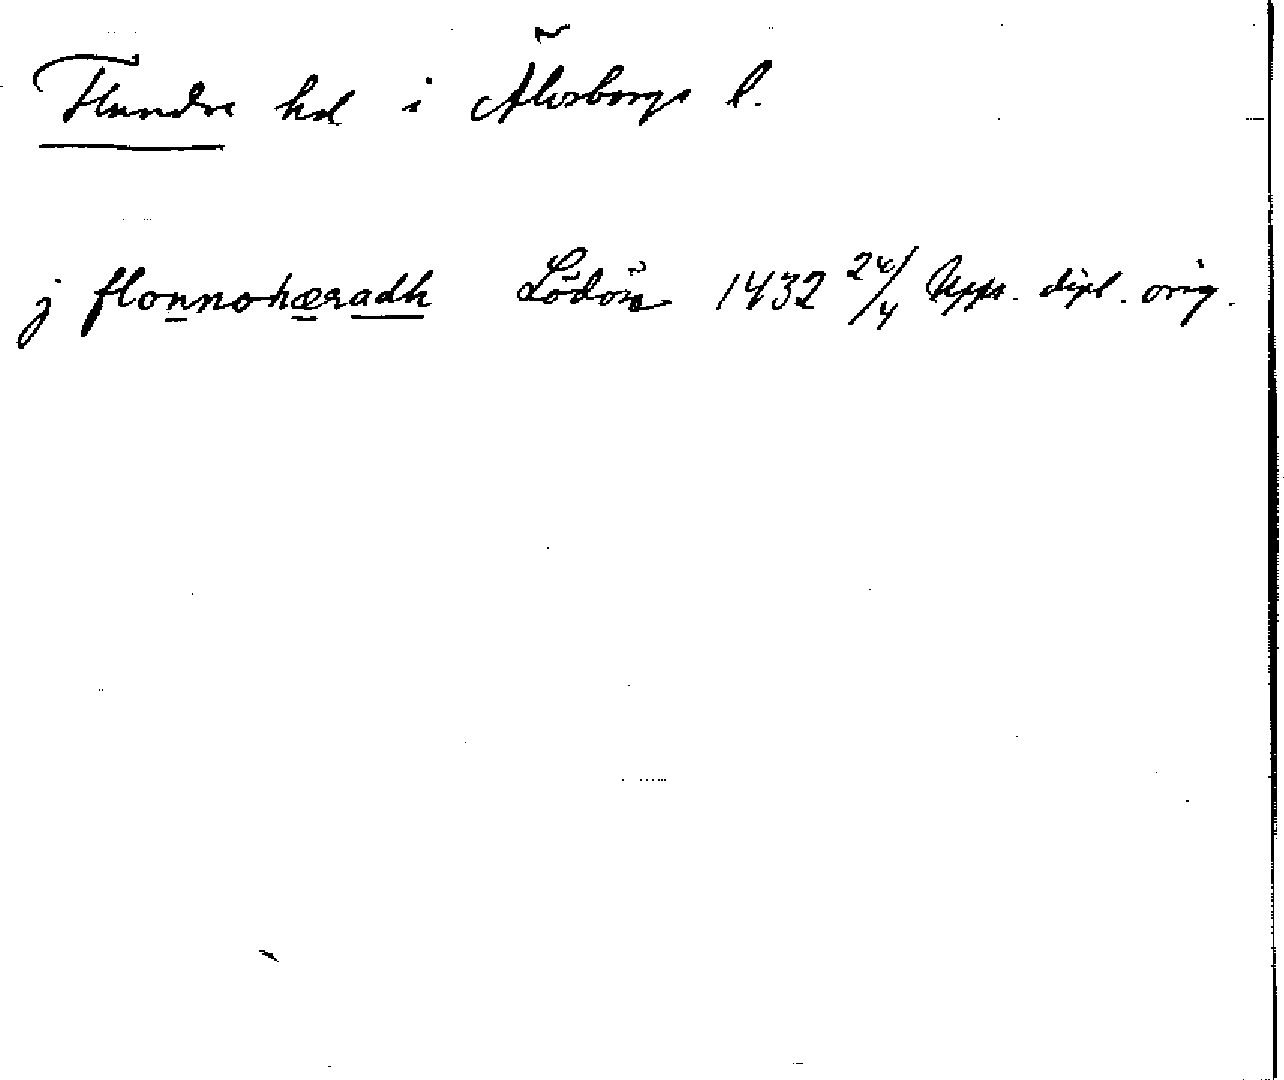 Flundre hd i Älvsborgs l.
j flonnohæradh Lödöse 1432 24/4 Upps. dipl. orig.